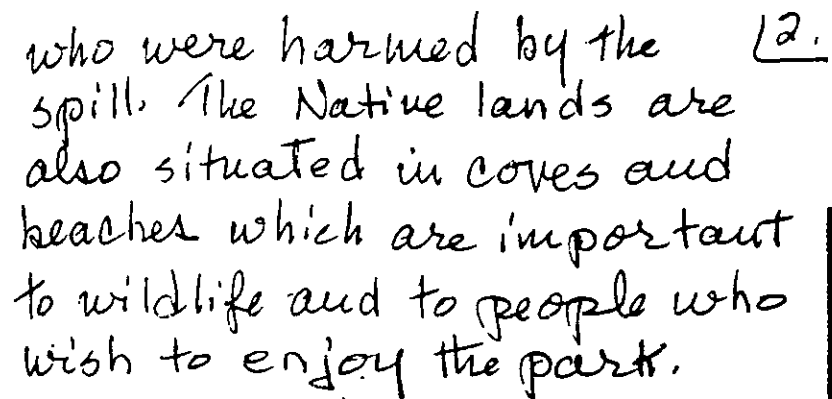 who were harmed by the 2.
spill. The Native lands are
also situated in coves and
beaches which are important
to wildlife and to people who
wish to enjoy the park.